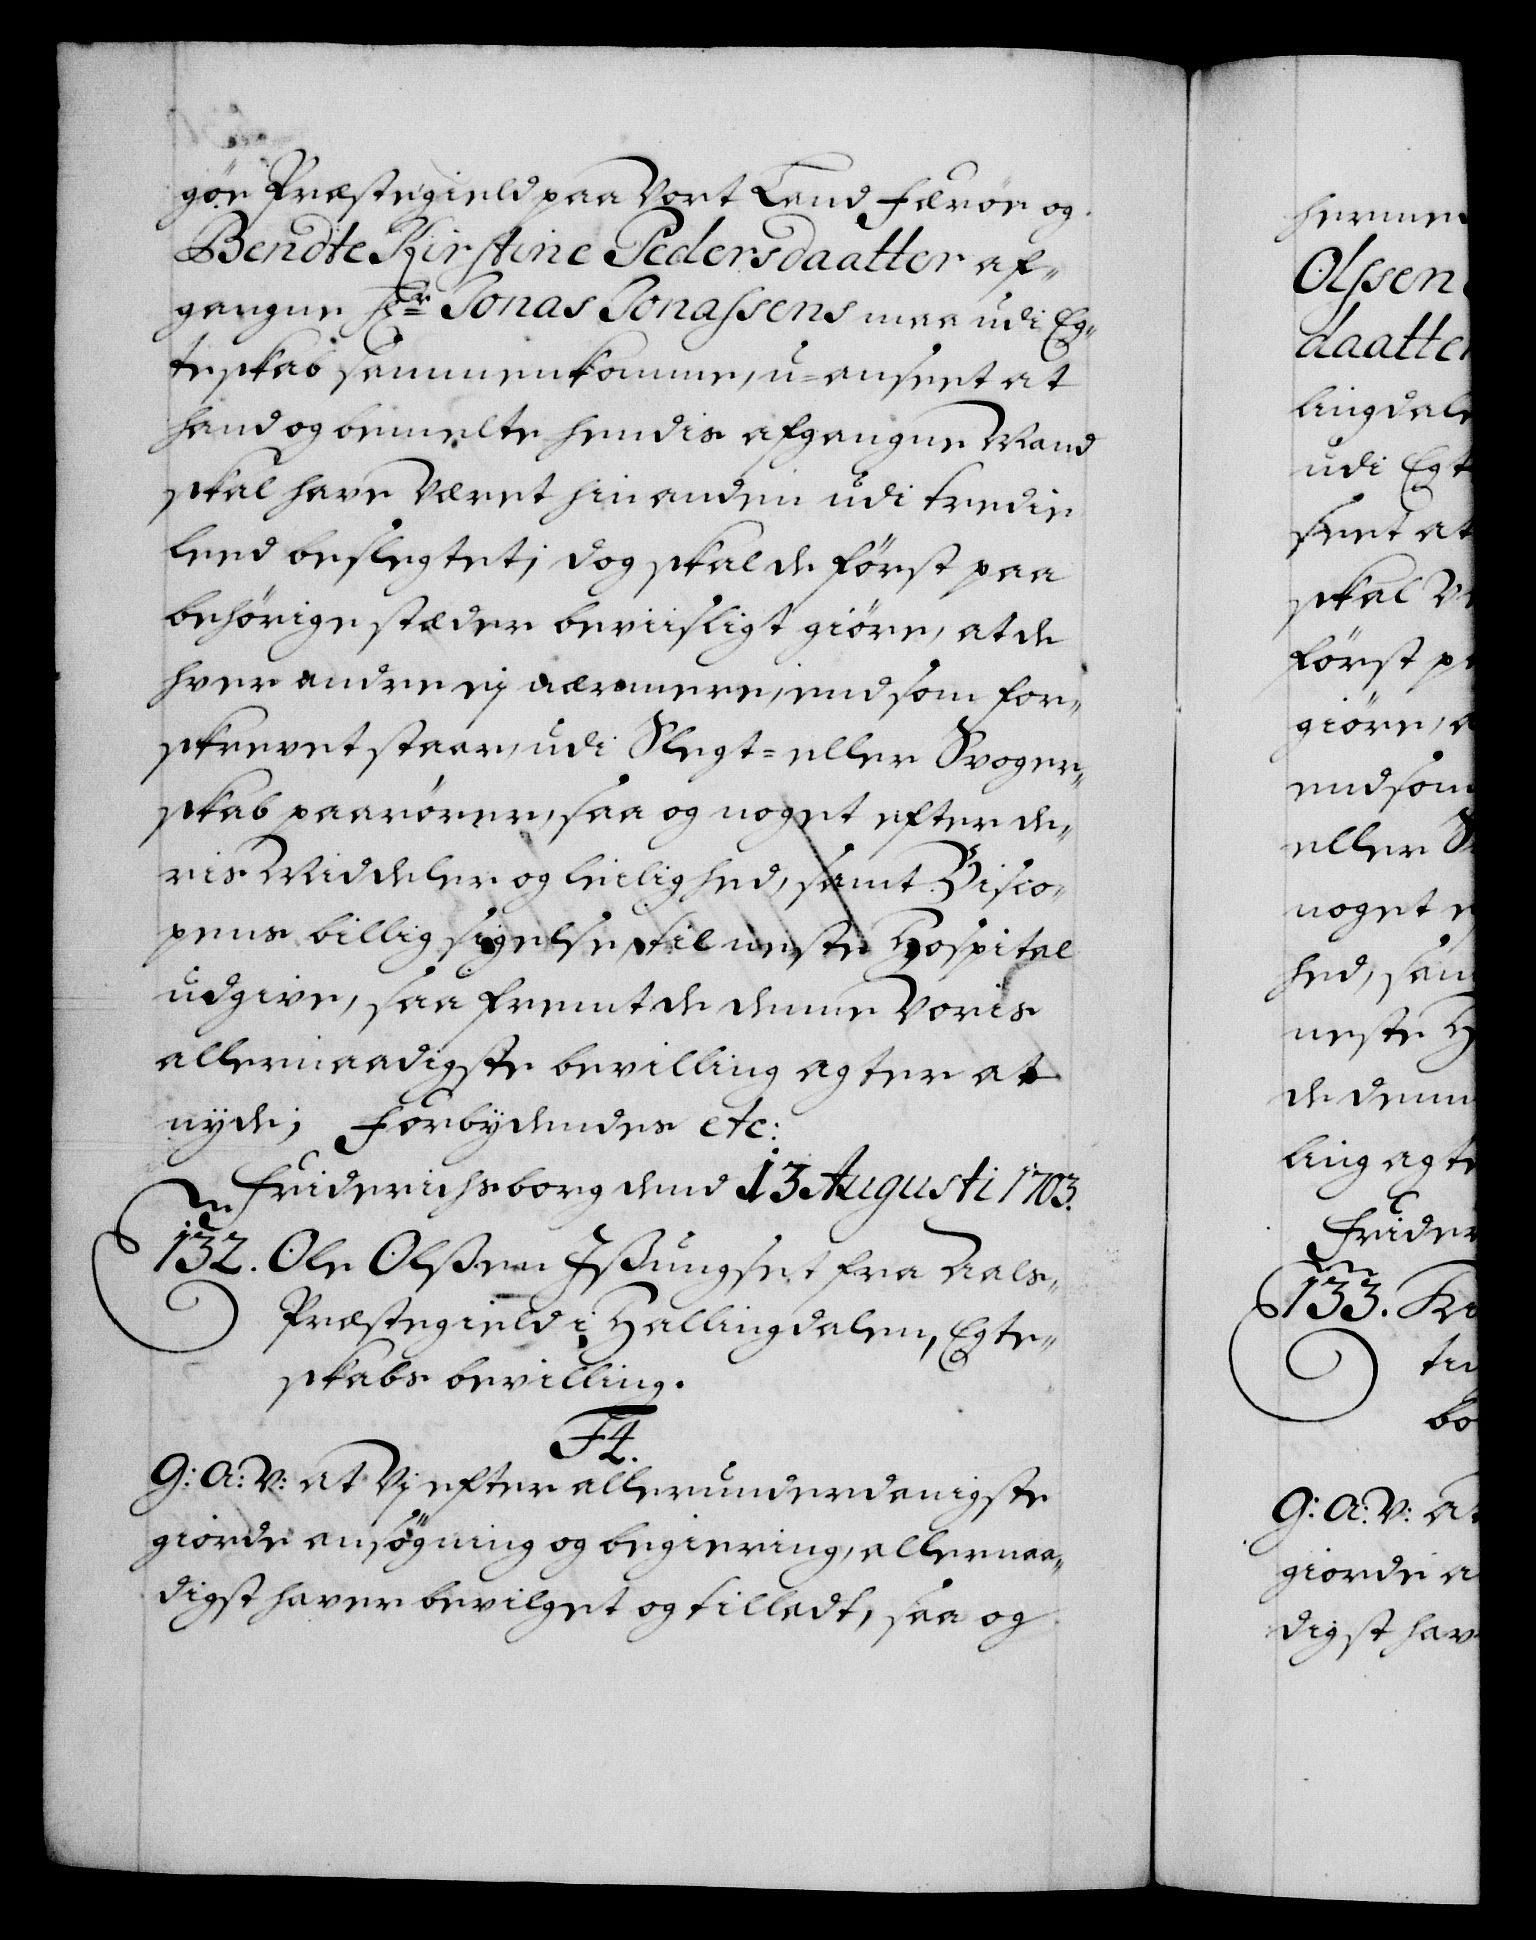 göe Præstegield paa Vort Land Færöe og
Bendte Kirstine Pedersdaatter af„
gangne Hr Jonas Jonassens maa udi Eg„
teskab sammenkomme, u-anseet at
hand og bemelte hendis afgangne Mand
skal have Været hinanden udi tredie
leed beslegtet; dog skal de först paa
behörige stæder beviisligt giöre, at de
hver andre ej nærmere, end som for„
skrevet staar, udi Slegt- eller Svoger„
skab paarörer, saa og noget efter de„
ris Middeler og leilighed, samt Bisco„
pens billig sigelse, til neste Hospital
udgive, saa fremt de denne Voris
allernaadigste bevilling agter at
nyde; Forbydendes etc:
Friderichsborg dend 13 Augusti 1703.
132. Ole Olssen Issungset fra Aals„
Præstegield i Hallingdalen, Egte„
skabs bevilling.
F4.
G: A: V: at Vj efter allerunderdanigste
giorde ansögning og begiering, allernaa„
digst haver bevilget og tilladt, saa og
hermed
Olssen
daatter
lingdale
udi Egt
seet at
skal Ve
först pa
giöre, a
end som
eller S
noget e
hed, sam
neste H
de denn
ling agte
Frider
133. Kn
tin
bo
G: A: V: at
giorde a
digst hav